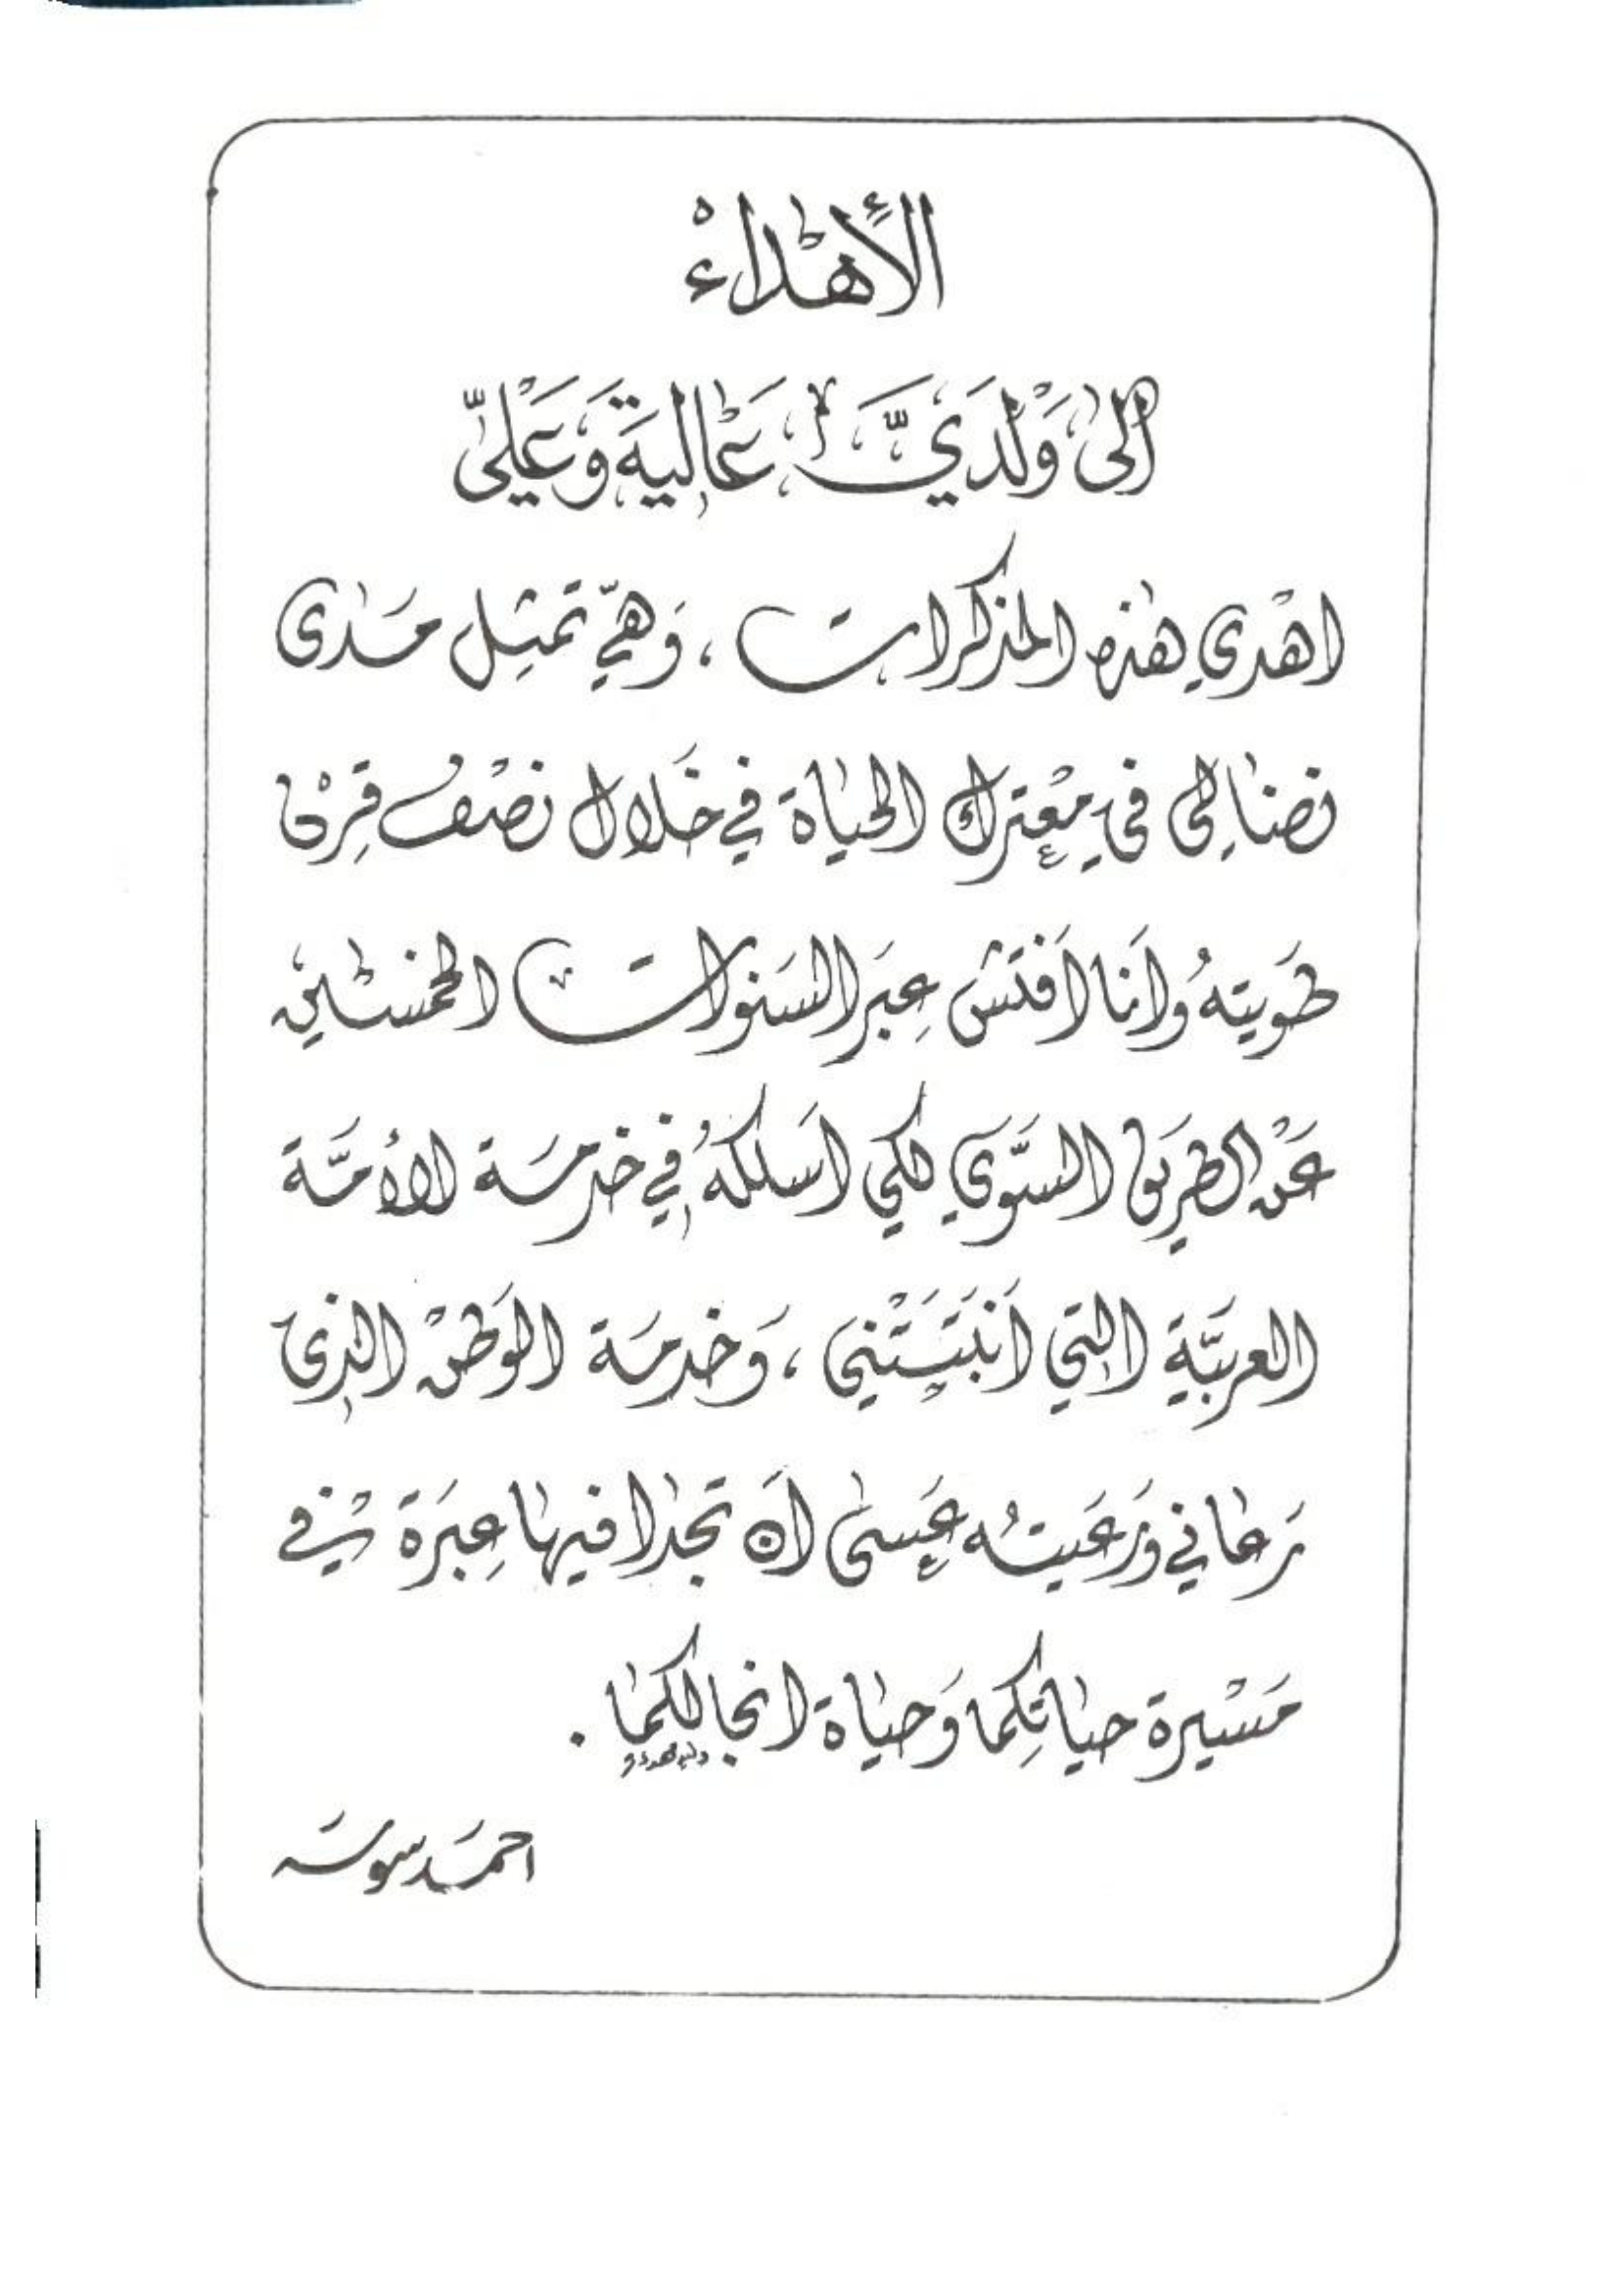 الأهداء
الى ولديَّ عالية وعليّ
اهدي هذه المذكرات ، وهي تمثل مدى
نضالي في معترك الحياة في خلال نصف قرن
طويته وانا افتش عبر السنوات الخمسين
عن الطريق السوّي لكي اسلكه في خدمة الأمّة
العربيّة التي انبتتني ، وخدمة الوطن الذي
رعاني ورعيته عسى ان تجدا فيها عبرة في
مسيرة حياتكما وحياة انجالكما .
احمد سوسه